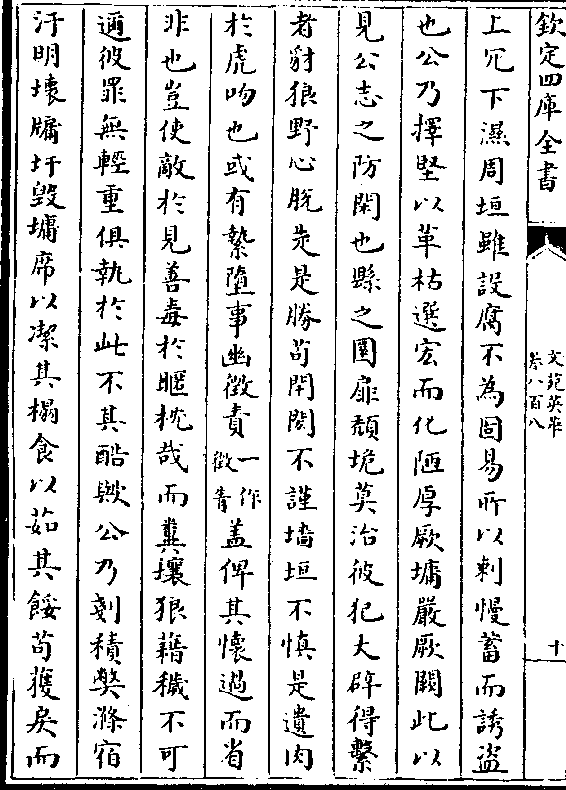 欽定四庫全書
文苑英華
卷八百八
十
上冗下濕周垣雖設腐不為固易所以刺慢蓄而誘盗
也公乃擇堅以革枯選宏而化陋厚厥墉嚴厥闕此以
見公志之防閑也縣之圜扉頽圮莫治彼犯大辟得繫
者豺狼野心脫走是勝苟開閡不謹墻垣不慎是遺肉
於虎吻也或有縶墮事幽徵責一作徵青蓋俾其懷過而省
非也豈使敵於見善毒於暱枕哉而糞壤狼藉穢不可
邇彼罪無輕重俱執於此不其酷歟公乃剗積獘滌宿
汙明壊牗圬毁墉席以潔其榻食以茹其餒苟獲戾而